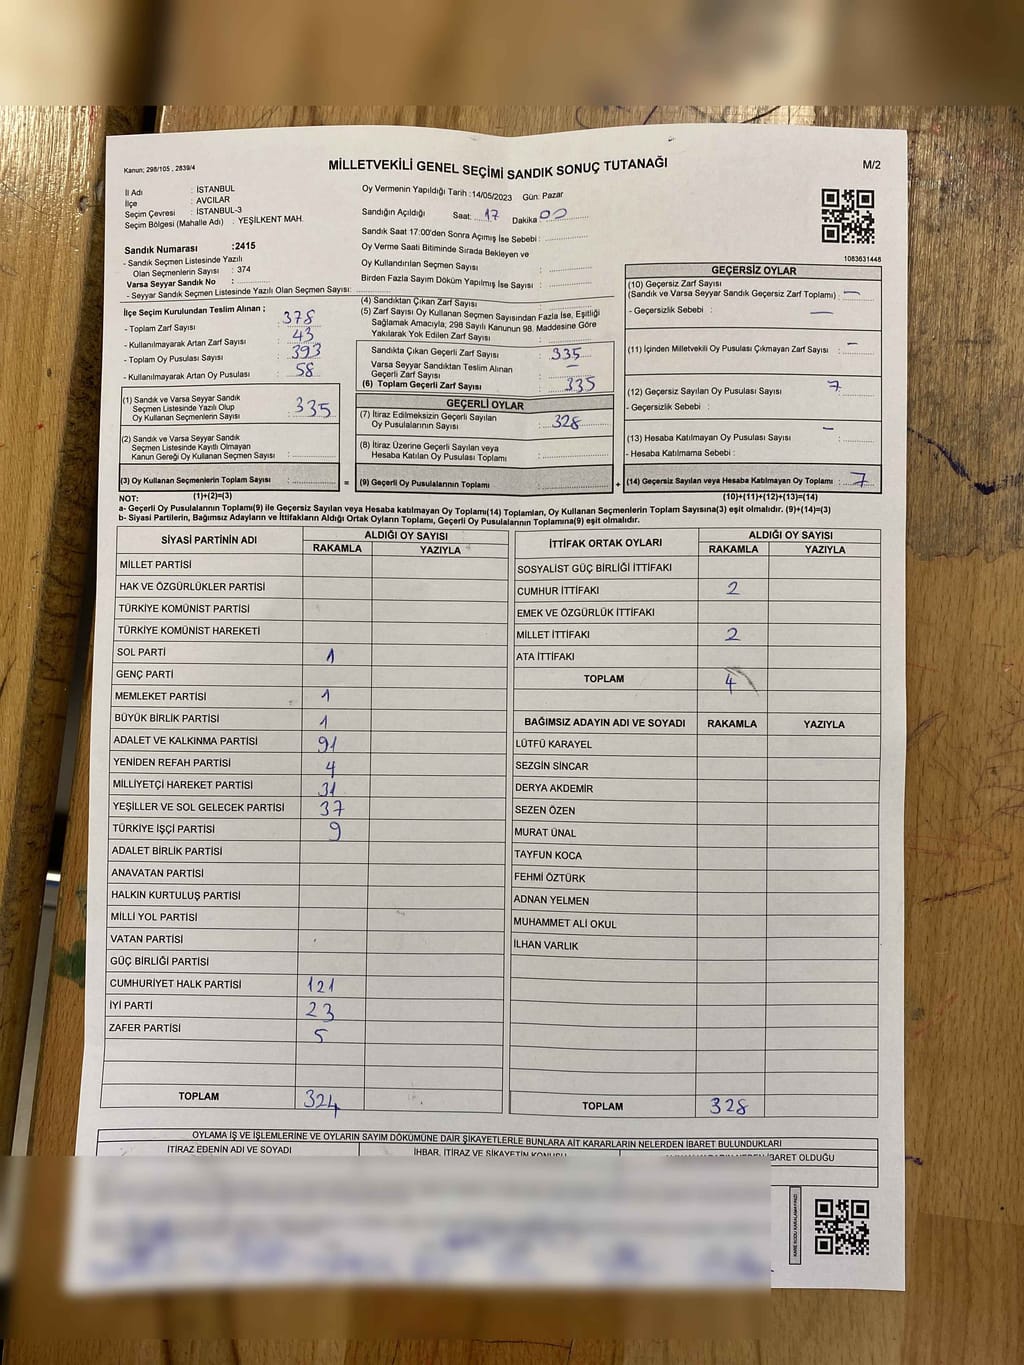 Kanun; 298/105 , 2839/4
MİLLETVEKİLİ GENEL SEÇİMİ SANDIK SONUÇ TUTANAĞI
M/2
İl Adı : İSTANBUL
İlçe : AVCILAR
Seçim Çevresi : İSTANBUL-3
Seçim Bölgesi (Mahalle Adı) : YEŞİLKENT MAH.
Sandık Numarası :2415
- Sandık Seçmen Listesinde Yazılı
Olan Seçmenlerin Sayısı : 374
Varsa Seyyar Sandık No :
- Seyyar Seçmen Listesinde Yazılı Olan Seçmen Sayısı:
Oy Vermenin Yapıldığı Tarih :14/05/2023 Gün: Pazar
Sandığın Açıldığı Saat: 17 Dakika 00
Sandık Saat 17:00'den Sonra Açımış İse Sebebi :
Oy Verme Saati Bitiminde Sırada Bekleyen ve
Oy Kullandırılan Seçmen Sayısı :
Birden Fazla Sayım Döküm Yapılmış İse Sayısı :
1083631448
İlçe Seçim Kurulundan Teslim Alınan ;
- Toplam Zarf Sayısı : 378
- Kullanılmayarak Artan Zarf Sayısı : 43
- Toplam Oy Pusulası Sayısı : 393
- Kullanılmayarak Artan Oy Pusulası : 58
(1) Sandık ve Varsa Seyyar Sandık
Seçmen Listesinde Yazılı Olup
Oy Kullanan Seçmenlerin Sayısı : 335
(2) Sandık ve Varsa Seyyar Sandık
Seçmen Listesinde Kayıtlı Olmayan
Kanun Gereği Oy Kullanan Seçmen Sayısı :
(3) Oy Kullanan Seçmenlerin Toplam Sayısı :
(4) Sandıktan Çıkan Zarf Sayısı :
(5) Zarf Sayısı Oy Kullanan Seçmen Sayısından Fazla İse, Eşitliği
Sağlamak Amacıyla; 298 Sayılı Kanunun 98. Maddesine Göre
Yakılarak Yok Edilen Zarf Sayısı :
Sandıkta Çıkan Geçerli Zarf Sayısı : 335
Varsa Seyyar Sandıktan Teslim Alınan
Geçerli Zarf Sayısı : —
(6) Toplam Geçerli Zarf Sayısı : 335
GEÇERLİ OYLAR
(7) İtiraz Edilmeksizin Geçerli Sayılan
Oy Pusulalarının Sayısı : 328
(8) İtiraz Üzerine Geçerli Sayılan veya
Hesaba Katılan Oy Pusulası Toplamı :
= (9) Geçerli Oy Pusulalarının Toplamı :
GEÇERSİZ OYLAR
(10) Geçersiz Zarf Sayısı
(Sandık ve Varsa Seyyar Sandık Geçersiz Zarf Toplamı) : —
- Geçersizlik Sebebi : —
(11) İçinden Milletvekili Oy Pusulası Çıkmayan Zarf Sayısı : —
(12) Geçersiz Sayılan Oy Pusulası Sayısı : 7
- Geçersizlik Sebebi :
(13) Hesaba Katılmayan Oy Pusulası Sayısı : —
- Hesaba Katılmama Sebebi :
+ (14) Geçersiz Sayılan veya Hesaba Katılmayan Oy Toplamı : 7
NOT: (1)+(2)=(3)
(10)+(11)+(12)+(13)=(14)
a- Geçerli Oy Pusulalarının Toplamı(9) ile Geçersiz Sayılan veya Hesaba katılmayan Oy Toplamı(14) Toplamları, Oy Kullanan Seçmenlerin Toplam Sayısına(3) eşit olmalıdır. (9)+(14)=(3)
b- Siyasi Partilerin, Bağımsız Adayların ve İttifakların Aldığı Ortak Oyların Toplamı, Geçerli Oy Pusulalarının Toplamına(9) eşit olmalıdır.
SİYASİ PARTİNİN ADI ALDIĞI OY SAYISI
RAKAMLA YAZIYLA
MİLLET PARTİSİ
HAK VE ÖZGÜRLÜKLER PARTİSİ
TÜRKİYE KOMÜNİST PARTİSİ
TÜRKİYE KOMÜNİST HAREKETİ
SOL PARTİ 1
GENÇ PARTİ
MEMLEKET PARTİSİ 1
BÜYÜK BİRLİK PARTİSİ 1
ADALET VE KALKINMA PARTİSİ 91
YENİDEN REFAH PARTİSİ 4
MİLLİYETÇİ HAREKET PARTİSİ 31
YEŞİLLER VE SOL GELECEK PARTİSİ 37
TÜRKİYE İŞÇİ PARTİSİ 9
ADALET BİRLİK PARTİSİ
ANAVATAN PARTİSİ
HALKIN KURTULUŞ PARTİSİ
MİLLİ YOL PARTİSİ
VATAN PARTİSİ
GÜÇ BİRLİĞİ PARTİSİ
CUMHURİYET HALK PARTİSİ 121
İYİ PARTİ 23
ZAFER PARTİSİ 5
TOPLAM 324
İTTİFAK ORTAK OYLARI ALDIĞI OY SAYISI
RAKAMLA YAZIYLA
SOSYALİST GÜÇ BİRLİĞİ İTTİFAKI
CUMHUR İTTİFAKI 2
EMEK VE ÖZGÜRLÜK İTTİFAKI
MİLLET İTTİFAKI 2
ATA İTTİFAKI
TOPLAM 4
BAĞIMSIZ ADAYIN ADI VE SOYADI RAKAMLA YAZIYLA
LÜTFÜ KARAYEL
SEZGİN SİNCAR
DERYA AKDEMİR
SEZEN ÖZEN
MURAT ÜNAL
TAYFUN KOCA
FEHMİ ÖZTÜRK
ADNAN YELMEN
MUHAMMET ALİ OKUL
İLHAN VARLIK
TOPLAM 328
OYLAMA İŞ VE İŞLEMLERİNE VE OYLARIN SAYIM DÖKÜMÜNE DAİR ŞİKAYETLERLE BUNLARA AİT KARARLARIN NELERDEN İBARET BULUNDUKLARI
İTİRAZ EDENİN ADI VE SOYADI İHBAR, İTİRAZ VE ŞİKAYETİN KONUSU İBARET OLDUĞU